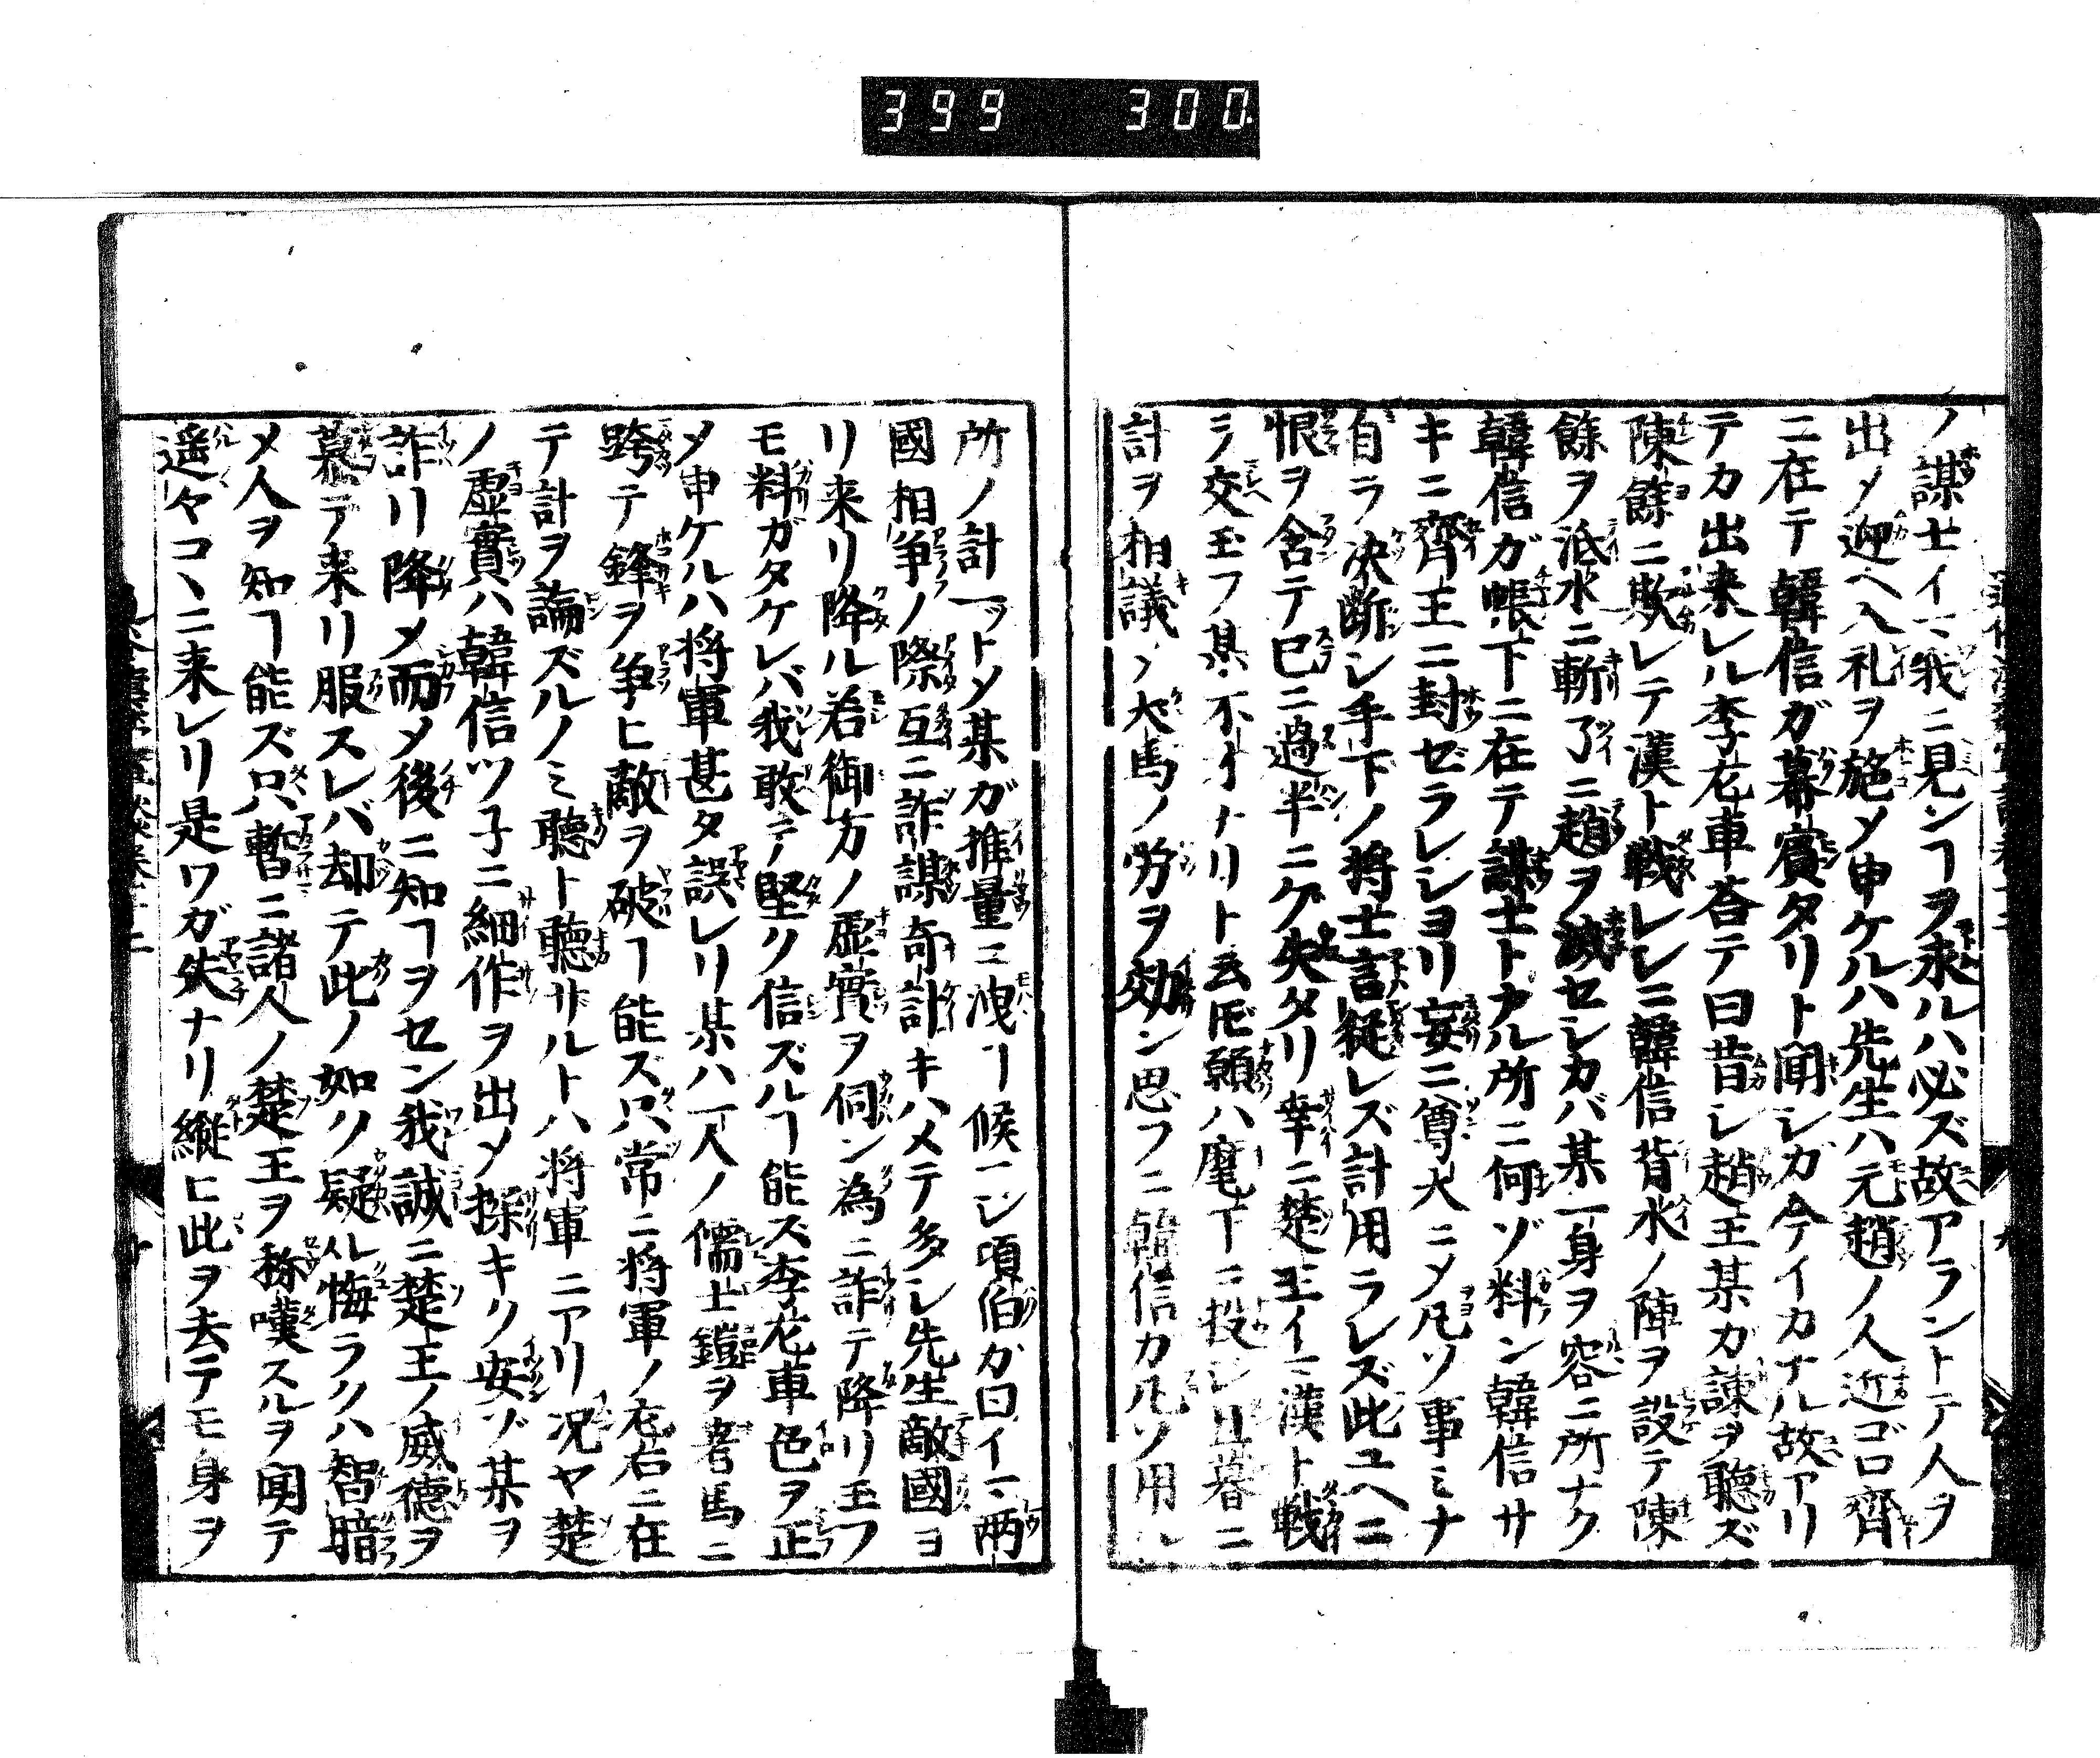 399 300
ノ謀士イマ我ニ見ンヿヲ求ルハ必ズ故アラントテ人ヲ
出メ迎ヘ入礼ヲ施メ申ケルハ先生ハ元趙ノ人近ゴロ齊
ニ在テ韓信ガ幕賓タリト聞シガ今イカナル故アリ
テカ出来レル李左車荅テ曰昔シ趙王某カ諌ヲ聴ズ
陳餘ニ敗レテ漢ト戦レシニ韓信背水ノ陣ヲ設テ陳
餘ヲ泜水ニ斬了ニ趙ヲ滅セシカバ某一身ヲ容ニ所ナク
韓信ガ帳下ニ在テ謀士トナル所ニ何ゾ料ン韓信サ
キニ齊王ニ封ゼラレシヨリ妄ニ尊大ニメ凡ソ事ミナ
自ラ决断シ手下ノ将士言従レズ計用ラレズ此ユヘニ
恨ヲ含テ已ニ過半ニゲ失タリ幸ニ楚王イマ漢ト戦
ヲ交玉フ某不才ナリト云𪜈願ハ麾下ニ投シ旦暮ニ
計ヲ相議メ犬馬ノ労ヲ効ン思フニ韓信カ凡ソ用ル
所ノ計一ツトメ某ガ推量ニ洩ヿ候マシ項伯カ曰イマ両
國相争ノ際互ニ詐謀奇計キハメテ多シ先生敵國ヨ
リ来リ降ル若御方ノ虚實ヲ伺ン為ニ詐テ降リ玉フ
モ料ガタケレバ我敢テ堅ク信ズルヿ能ズ李左車色ヲ正
メ申ケルハ将軍甚タ誤レリ某ハ一人ノ儒士鎧ヲ著馬ニ
跨テ鋒ヲ争ヒ敵ヲ破ヿ能ズ只常ニ将軍ノ左右ニ在
テ計ヲ論ズルノミ聴ト聴サルトハ将軍ニアリ况ヤ楚
ノ虚實ハ韓信ツ子ニ細作ヲ出メ探キク安ゾ某ヲ
詐リ降メ而メ後ニ知ヿヲセン我誠ニ楚王ノ威德ヲ
慕テ来リ服スレバ却テ此ノ如ク疑ル悔ラクハ智暗
メ人ヲ知ヿ能ズ只暫ニ諸人ノ楚王ヲ称嘆スルヲ聞テ
遥々コヽニ来レリ是ワガ失ナリ縦ヒ此ヲ去テモ身ヲ